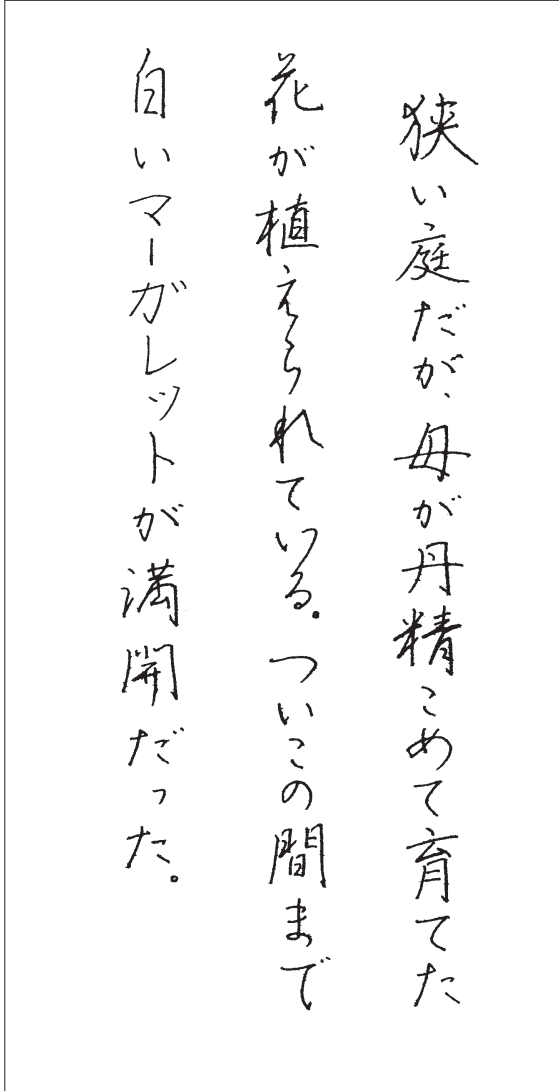 狭い庭だが、母が丹精こめて育てた
花が植えられている。ついこの間まで
白いマーガレットが満開だった。